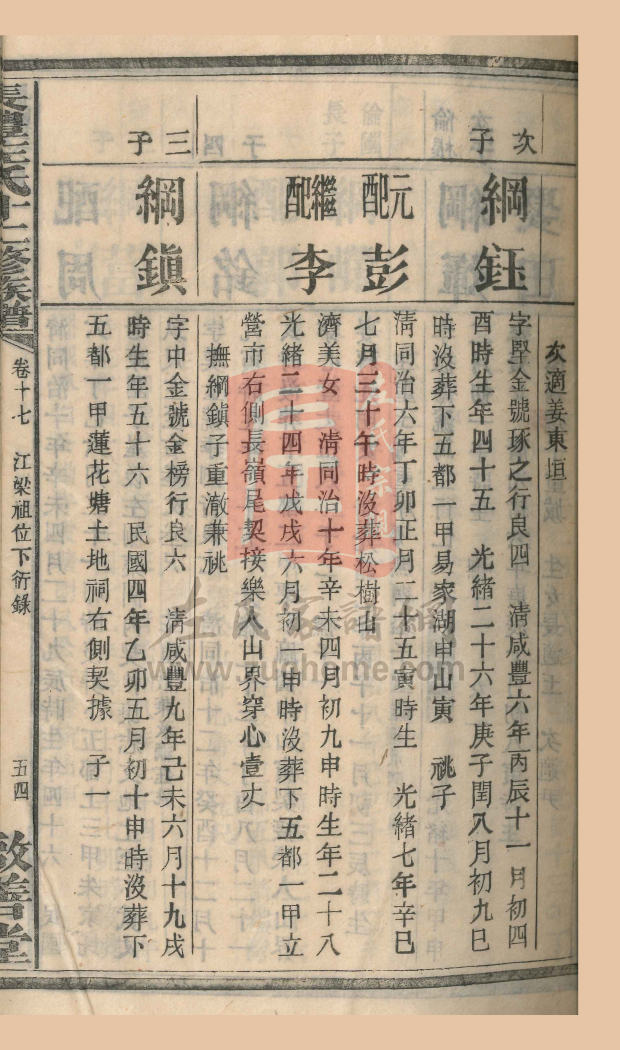 次適姜東垣
次子
綱鈺
字堅金號琢之行良四 清咸豐六年丙辰十一月初四
酉時生年四十五 光緒二十六年庚子閏八月初九巳
時沒葬下五都一甲易家湖申山寅 祧子
元配彭
清同治六年丁卯正月二十五寅時生 光緒七年辛巳
七月三十午時沒葬松樹山
繼配李
濟美女 清同治十年辛未四月初九申時生年二十八
光緒二十四年戊戌六月初一申時沒葬下五都一甲立
營市右側長嶺尾契接樂人山界穿心壹丈
撫綱鎮子重澈兼祧
三子
綱鎮
字中金號金榜行良六 清咸豐九年己未六月十九戌
時生年五十六 民國四年乙卯五月初十申時沒葬下
五都一甲蓮花塘土地祠右側契據 子一
氏十二修族譜
卷十七 江梁祖位下衍錄
五四
敦善堂
www.sunhome.com